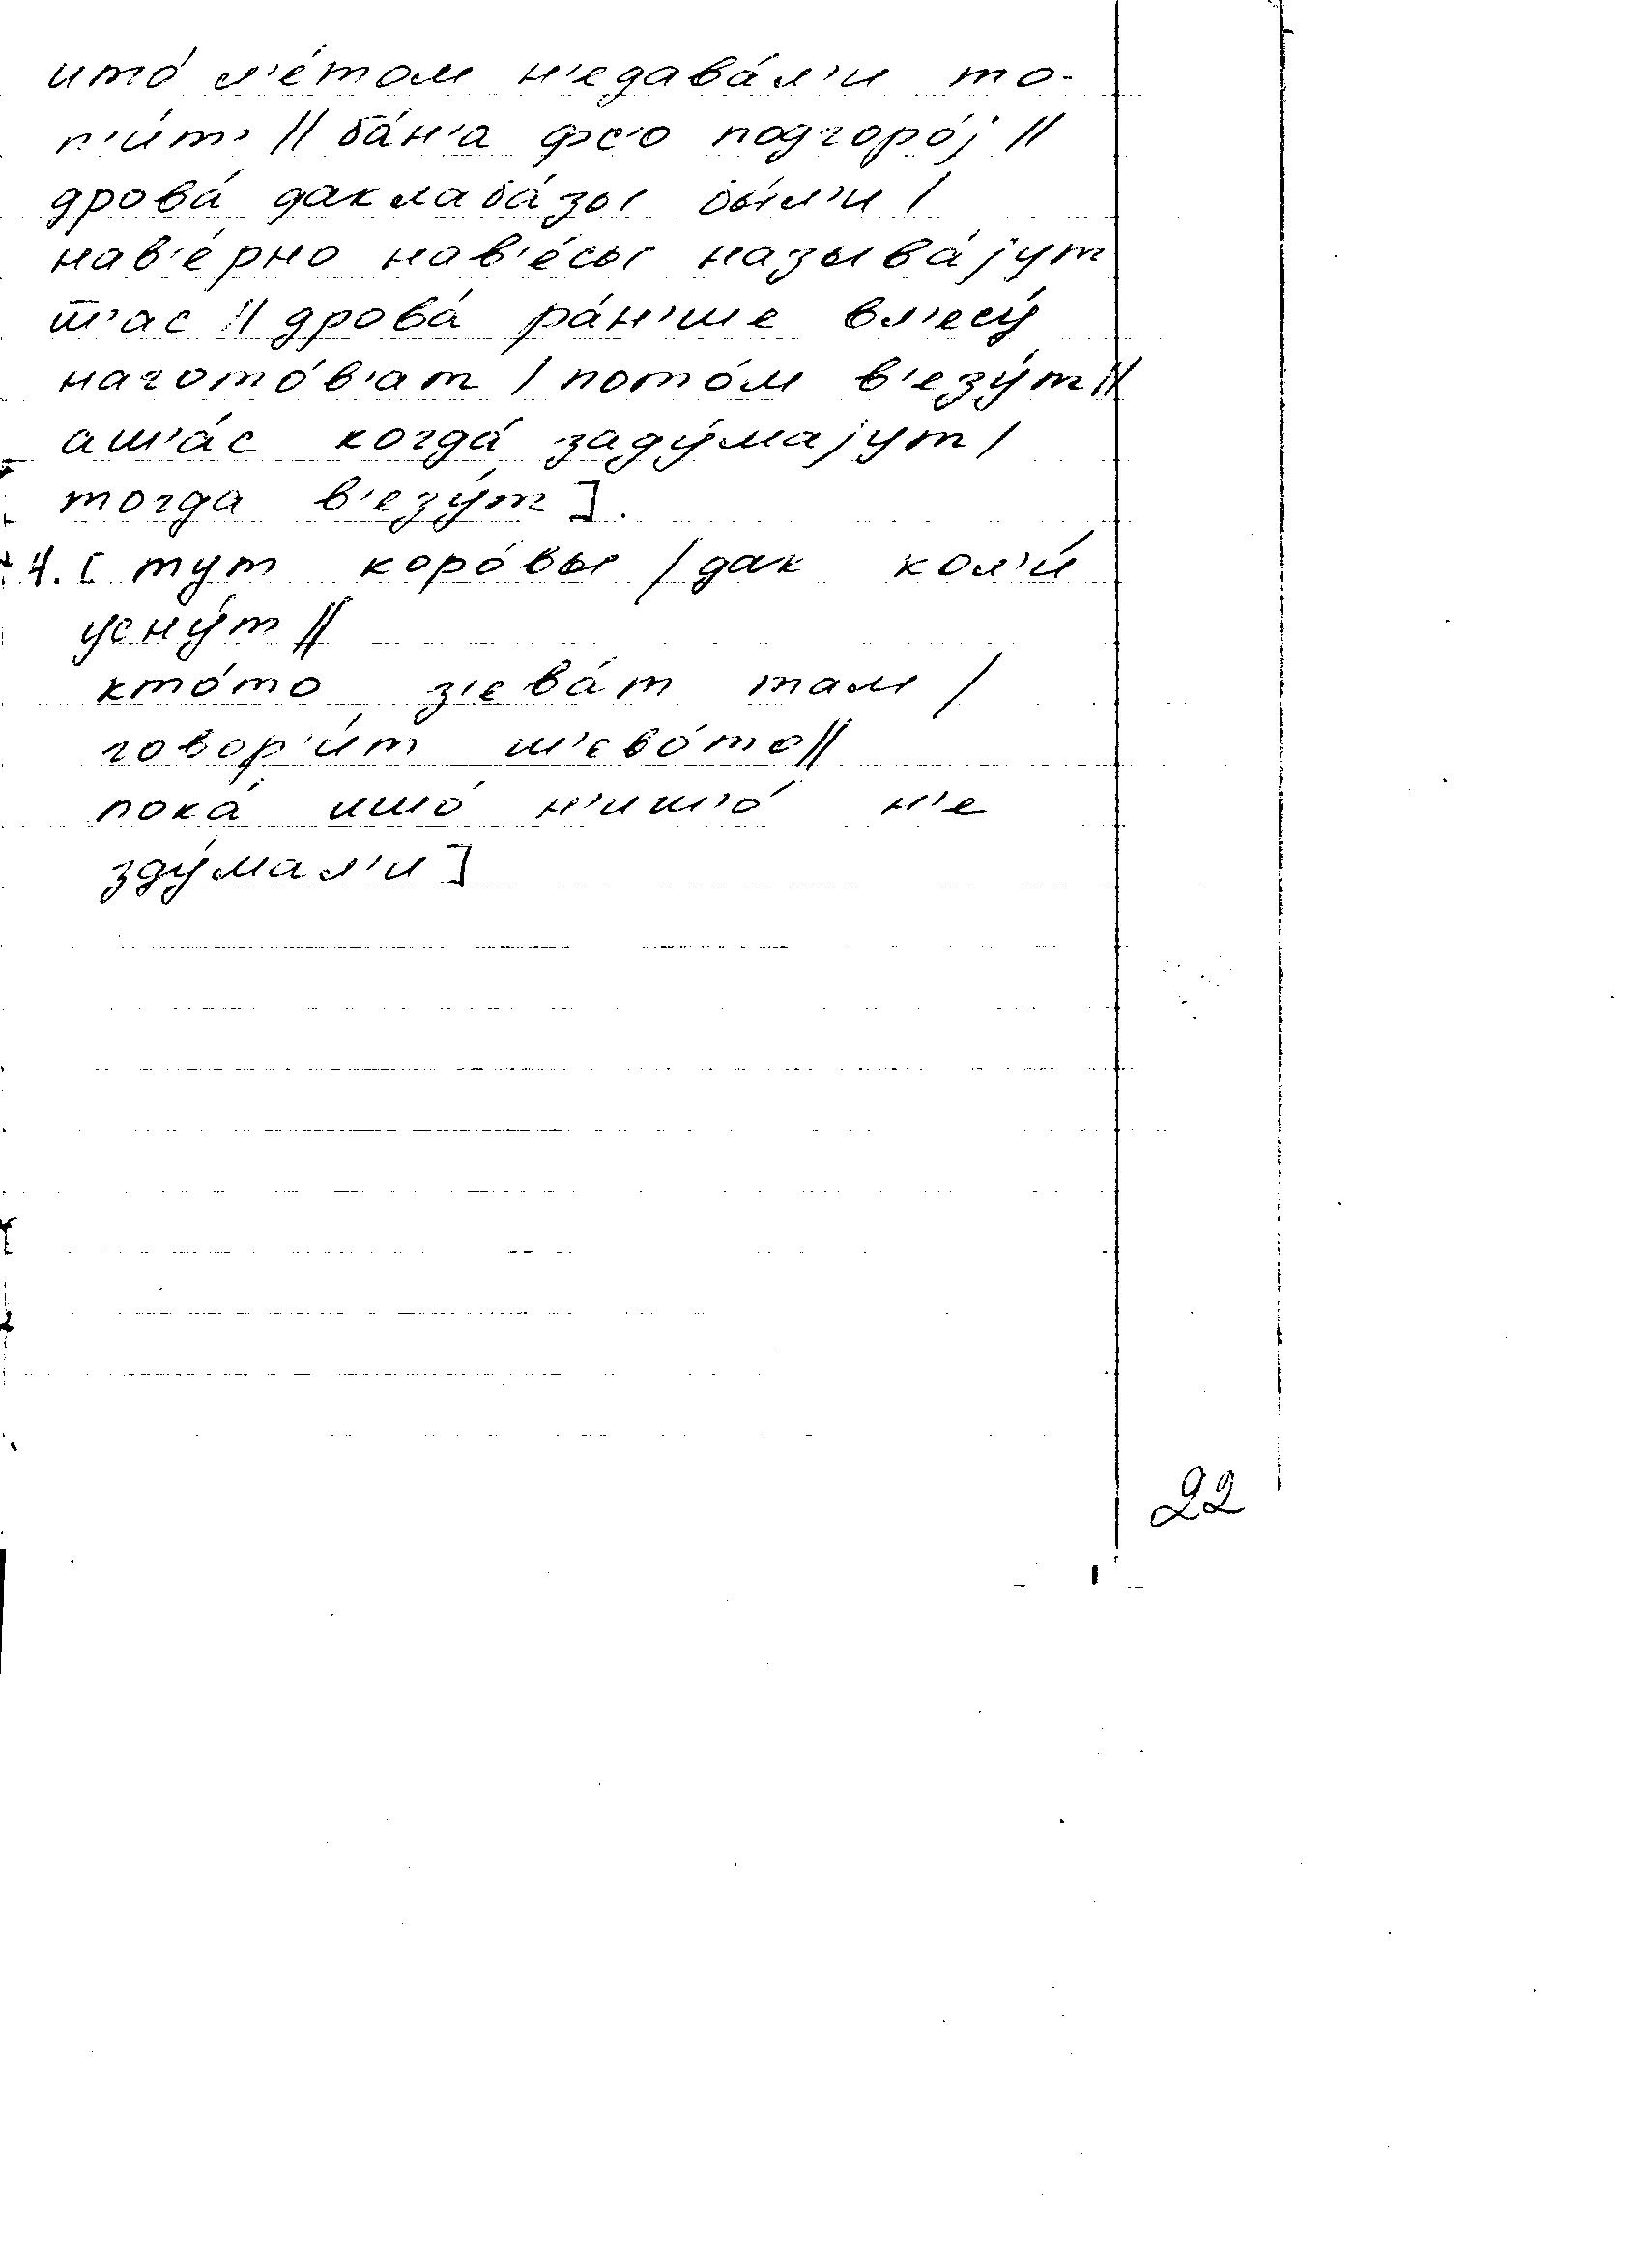 што́ л'е́том н'едава́л'и то-
п'и́т' || ба́н'а фс'о подгоро́j ||
дрова́ даклаба́зы бы́л'и /
нав'е́рно нав'е́сы называ́jут
ш'ас || дрова́ ра́н'ше вл'есу́
нагото́в'ат / пото́м в'езу́т ||
аш'а́с когда́ заду́маjут /
тогда в'езу́т ].
4. [ тут коро́вы / дак кол'и́
усну́т ||
кто́то з'ева́т там /
говор'и́т ш'ево́то ||
пока́ ишо́ н'иш'о́ н'е
зду́мал'и ]
22